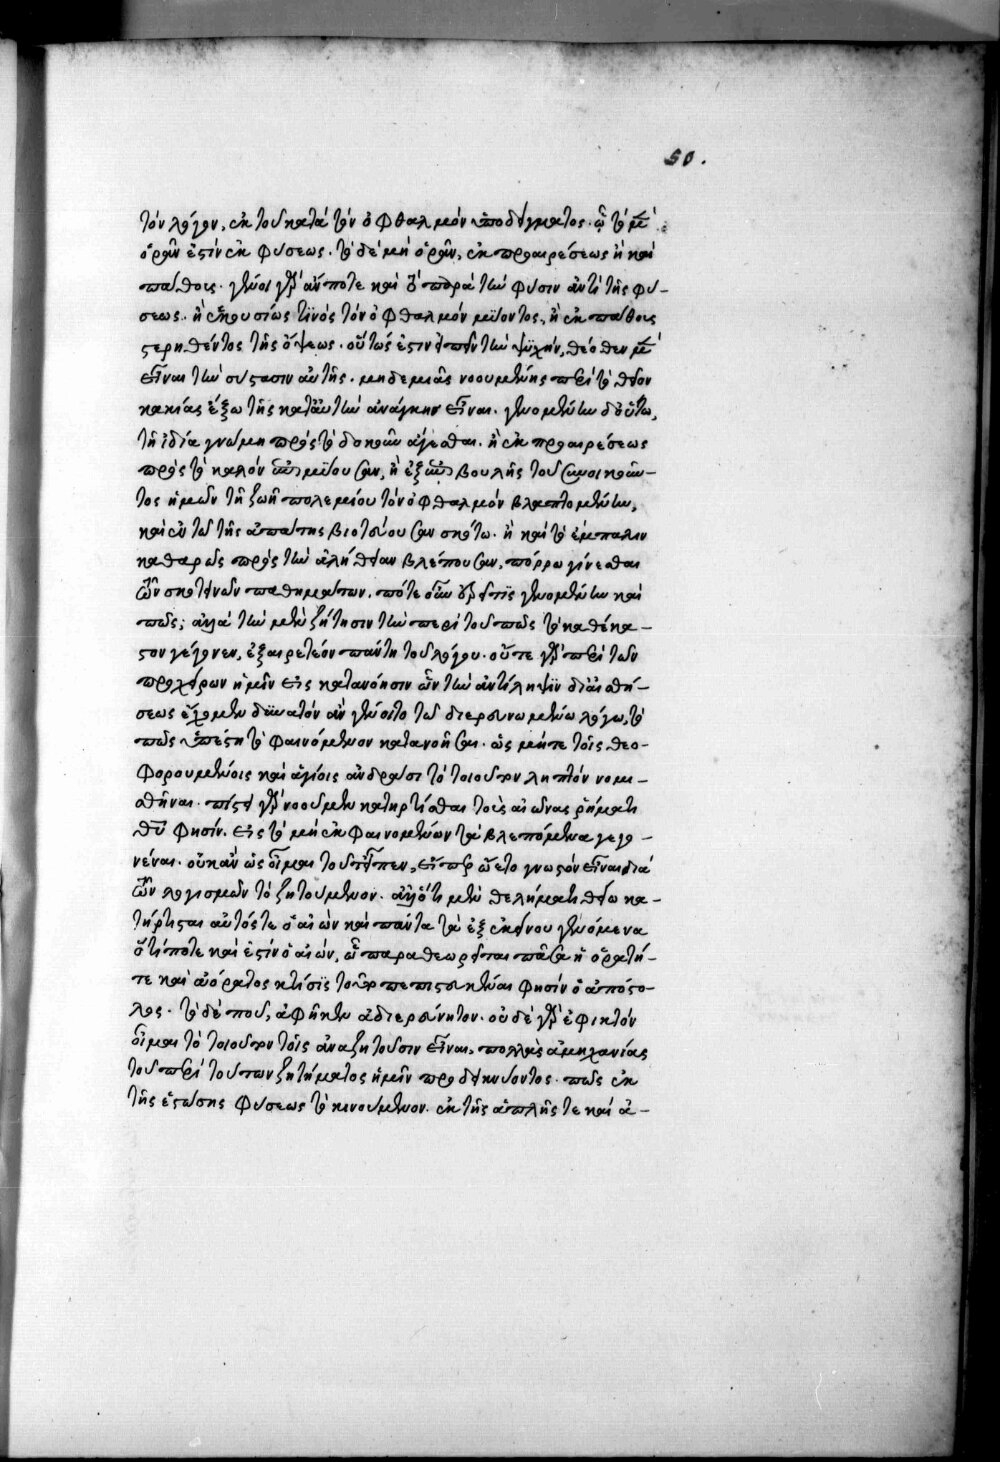 50.
τὸν λόγον, ἐκ τοῦ κατὰ τὸν ὀφθαλμὸν ὑποδείγματος. ᾧ τὸ μὲν
ὁρᾶν ἐστὶν ἐκ φύσεως. τὸ δὲ μὴ ὁρᾶν, ἐκ προαιρέσεως ἢ καὶ
πάθους. γένοι γὰρ ἄν ποτε καὶ τὸ παρὰ τὴν φύσιν ἀντὶ τῆς φύ-
σεως. ἢ ἑκουσίως τινὸς τὸν ὀφθαλμὸν μύοντος, ἢ ἐκ πάθους
στερηθέντος τῆς ὄψεως. οὕτως ἐστὶν εἰπεῖν τὴν ψυχὴν, θεόθεν μὲν
εἶναι τὴν σύστασιν αὐτῆς. μηδεμιᾶς νοουμένης περὶ τὸ θεῖον
κακίας ἔξω τῆς κατ' αὐτὴν ἀνάγκην εἶναι. γενομένην δ' οὕτω,
τῇ ἰδίᾳ γνώμῃ πρὸς τὸ δοκοῦν ἄγεσθαι. ἢ ἐκ προαιρέσεως
πρὸς τὸ καλὸν ἐπιμύουσαν, ἢ ἐξ ἐπιβουλῆς τοῦ συνοικοῦν-
τος ἡμῶν τῇ ζωῇ πολεμίου τὸν ὀφθαλμὸν βλαπτομένην,
καὶ ἐν τῷ τῆς ἀπάτης βιοτεύουσαν σκότῳ. ἢ καὶ τὸ ἔμπαλιν
καθαρῶς πρὸς τὴν ἀλήθειαν βλέπουσαν, πόρρω γίνεσθαι
τῶν σκοτεινῶν παθημάτων. πότε οὖν γὰρ εἴποι τις γενομένην καὶ
πῶς; ἀλλὰ τὴν μὲν ζήτησιν τὴν περὶ τοῦ πῶς τὸ καθέκα-
στον γέγονεν, ἐξαιρετέον πάντῃ τοῦ λόγου. οὔτε γὰρ περὶ τῶν
προχείρων ἡμῖν εἰς κατανόησιν ὧν τὴν ἀντίληψιν δι' αἰσθή-
σεως ἔχομεν δυνατὸν ἂν γένοιτο τῷ διερευνωμένῳ λόγῳ, τὸ
πῶς ὑπέστη τὸ φαινόμενον κατανοῆσαι. ὡς μήτε τοῖς θεο-
φορουμένοις καὶ ἁγίοις ἀνδράσι τὸ τοιοῦτον ληπτὸν νομι-
σθῆναι. πίστει γὰρ νοοῦμεν κατηρτίσθαι τοὺς αἰῶνας ῥήματι
θυ φησὶν. εἰς τὸ μὴ ἐκ φαινομένων τὰ βλεπόμενα γεγο-
νέναι. οὐκ ἂν ὡς οἶμαι τοῦτ' εἶπεν, εἴπερ ᾤετο γνωστὸν εἶναι διὰ
τῶν λογισμῶν τὸ ζητούμενον. ἀλλ' ὅτι μὲν θελήματι θείῳ κα-
τήρτισται αὐτός τε ὁ αἰὼν καὶ πάντα τὰ ἐξ ἐκείνου γενόμενα
ὅ τί ποτε καὶ ἐστὶν ὁ αἰὼν, ᾧ παραθεωρεῖται πᾶσα ἡ ὁρατή-
τε καὶ ἀόρατος κτίσις τοῦτο πεπίστευκέναι φησὶν ὁ ἀπόστο-
λος. τὸ δέ που, ἀφῆκεν ἀδιερεύνητον. οὐδὲ γὰρ ἐφικτὸν
οἶμαι τὸ τοιοῦτον τοῖς ἀναζητοῦσιν εἶναι, πολλὰς ἀμηχανίας
τοῦ περὶ τούτων ζητήματος ἡμῖν προδεικνύοντος. πῶς ἐκ
τῆς ἑστώσης φύσεως τὸ κινούμενον. ἐκ τῆς ἁπλῆς τε καὶ ἀ-